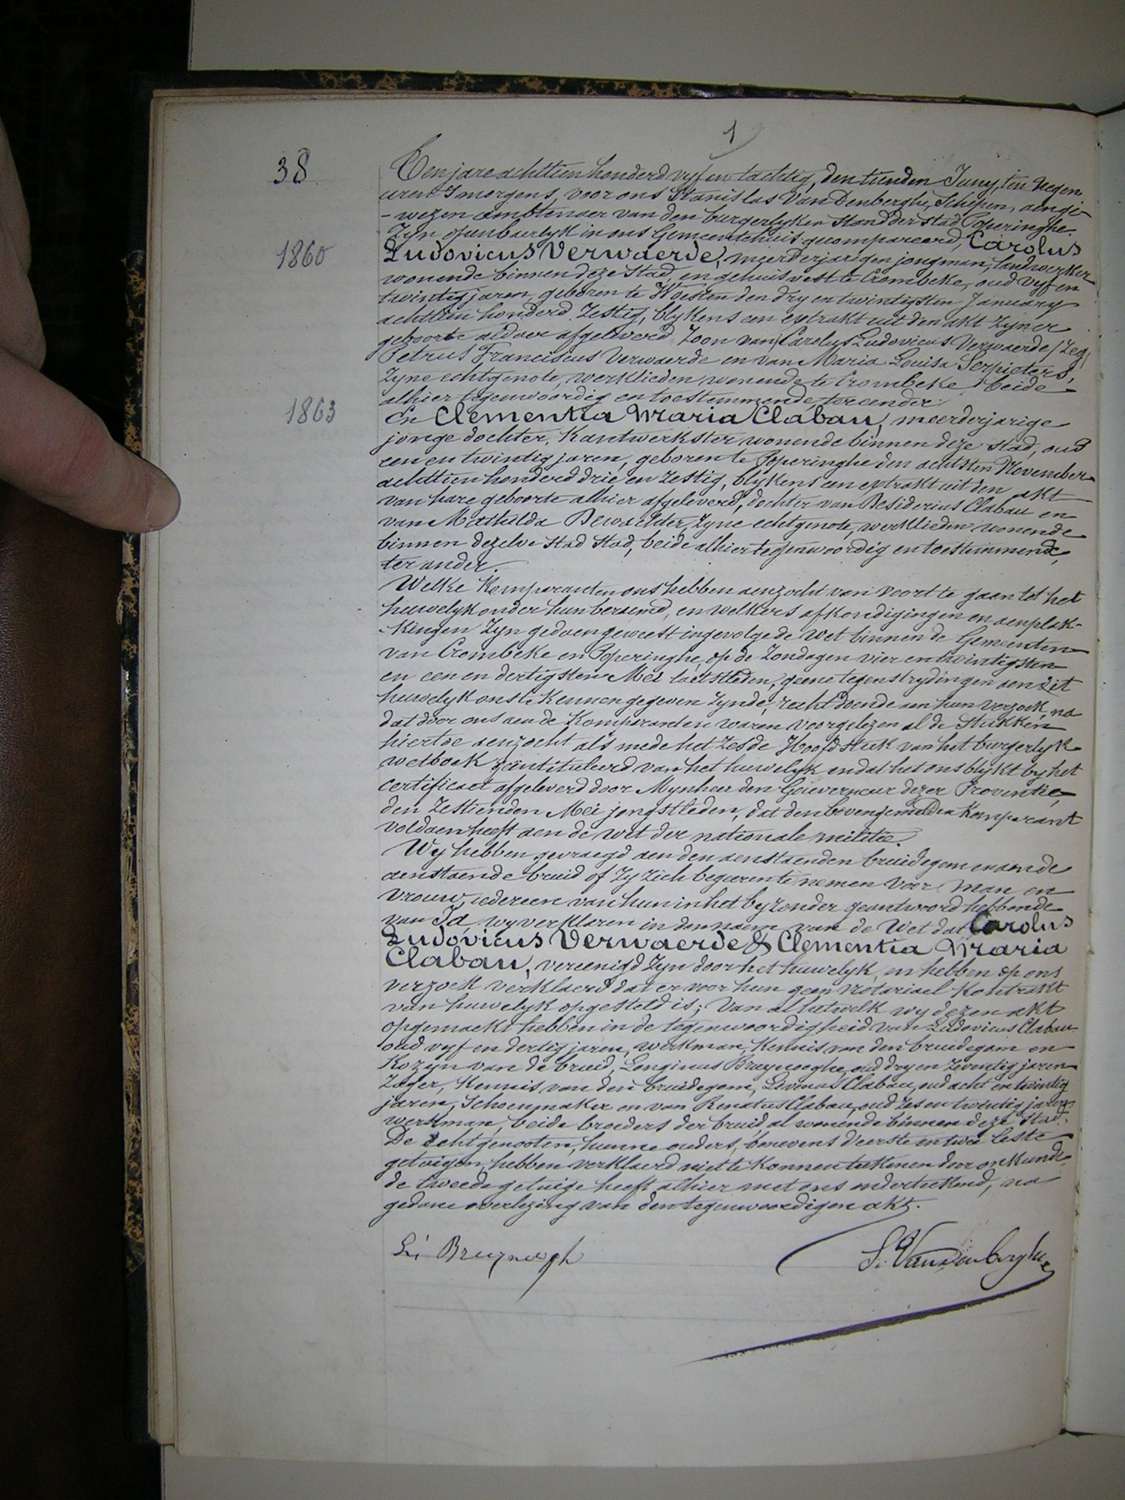 1
38
Ten jare achttien honderd vyf en tachtig, den tienden Juny, ten negen
uren 's morgens, voor ons Stanislas Van Denberghe, Schepen, aenge-
-wezen ambtenaer van den burgerlyken Stand der stad Poperinghe.
Zyn openbaerlyk in ons Gemeentehuis gecompareerd, Carolus
1860
Ludovicus Verwaerde, meerderjarigen jongman, landwerker
wonende binnen deze Stad, en gehuisvest te Crombeke, oud vyf en
twintig jaren, geboren te Woesten den dry en twintigsten January
achttien honderd Zestig, blykens een extrakt uit den akt Zyner
geboorte aldaer afgeleverd, Zoon van Carolus Ludovicus Verwaerde / Zeg
Petrus Franciscus Verwaerde en van Maria Louisa Serpieters,
Zyne echtgenote, werklieden, wonende te Crombeke, beide
alhier tegenwoordig en toestemmende, ter eender
1863
En Clementia Maria Clabau, meerderjarige
jonge dochter, Kantwerkster wonende binnen deze stad, oud
een en twintig jaren, geboren te Poperinghe den achtsten November
achttien honderd drie en Zestig, blykens een extrakt uit den akt
van hare geboorte alhier afgeleverd, dochter van Desiderius Clabau en
van Mathilda Dewaelder, Zyne echtgenote, werklieden wonende
binnen dezelve Stad Stad, beide alhier tegenwoordig en toestemmende,
ter ander.
Welke Komparanten ons hebben aenzocht van voort te gaan tot het
huwelyk onder hun beraemd, en welkers afkondigingen en aenplak-
-kingen Zyn gedaen geweest ingevolge de Wet binnen de Gemeenten
van Crombeke en Poperinghe, op de Zondagen vier en twintigsten
en een en dertigsten Mei laetstleden, geene tegenstrydingen aen dit
huwelyk ons te Kennen gegeven Zynde, recht doende aen hun verzoek, na
dat door ons aen de Komparanten waren voorgelezen al de Stukken
hiertoe aenzocht als mede het Zesde Hoofdstuk van het burgerlyk
wetboek geïntituleerd van het huwelyk en dat het ons blykt by het
certificaet afgeleverd door Mynheer den Gouverneur dezer Provintie,
den Zestienden Mei jongstleden, dat den bovengemelden Komparant
voldaen heeft aen de wet der nationale militie.
Wy hebben gevraegd aen den aenstaenden bruidegom en aen de
aenstaende bruid of Zy Zich begeeren te nemen voor man en
vrouw, iedereen van hun in het byzonder geantwoord hebbende
van Ja, wy verklaren in den naem van de Wet dat Carolus
Ludovicus Verwaerde & Clementia Maria
Clabau, vereenigd Zyn door het huwelyk, en hebben op ons
verzoek verklaerd dat er voor hun geen notariael Kontrakt
van huwelyk opgesteld is; Van al hetwelk wy dezen akt
opgemaekt hebben in de tegenwoordigheid van Ludovicus Clabau
oud vyf en dertig jaren, werkman, Kennis van den bruidegom en
Kozyn van de bruid, Longinus Bruynooghe, oud dry en Zeventig jaren
Zager, Kennis van den bruidegom, Livinus Clabau, oud acht en twintig
jaren, Schoenmaker en van Renatus Clabau, oud Zes en twintig jaren
werkman, beide broeders der bruid, al wonende binnen deze Stad.
De Echtgenooten, hunne ouders, benevens d'eerste en twee leste
getuigen, hebben verklaerd niet te Konnen teekenen door onkunde
de tweede getuige heeft alhier met ons onderteekend, na
gedane overlezing van den tegenwoordigen akt.
S. Vandenberghe